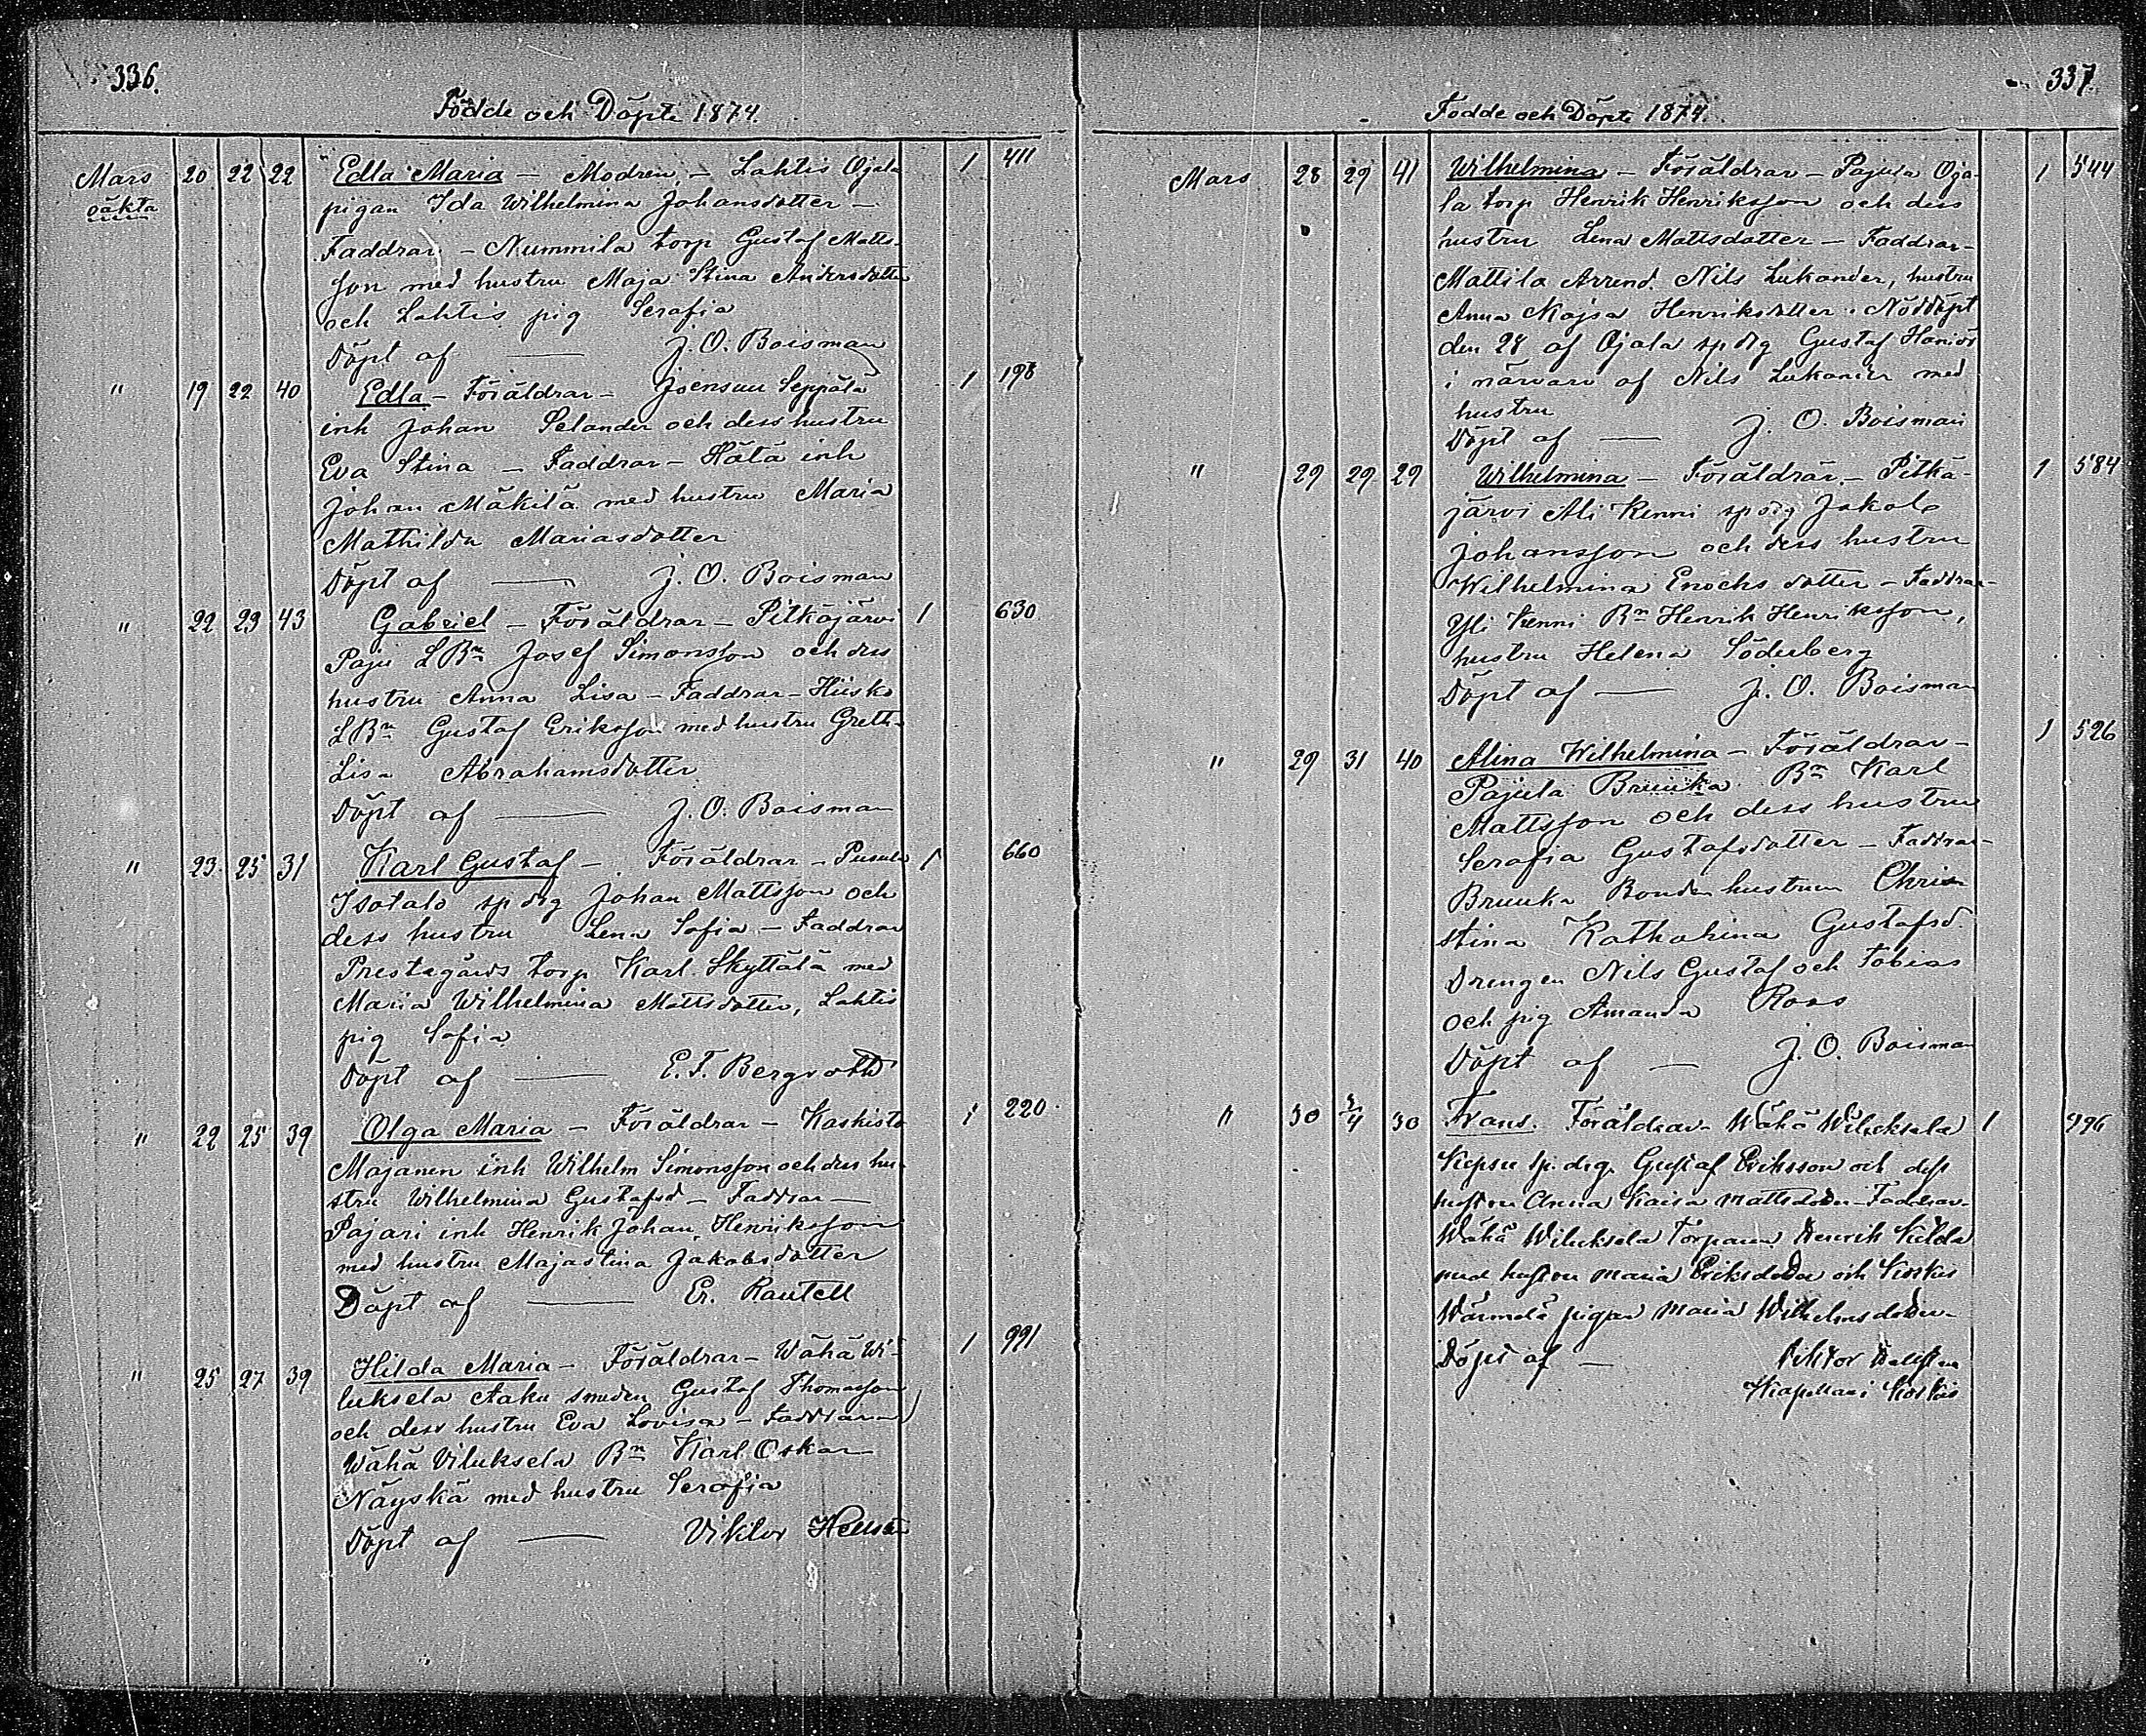 336.
Födde och Döpte 1874.
Mars 20 22 22 Edla Maria – Modren – Lahtis Ojala 1 411
oäkta pigan Ida Wilhelmina Johansdotter –
Faddrar – Nummila torp Gustaf Matts-
son med hustru Maja Stina Andersdotter
och Lahtis pig Serafia
Döpt af — J. O. Boisman
" 19 22 40 Edla – Föräldrar – Joensuu Seppälä 1 198
inh Johan Selander och dess hustru
Eva Stina – Faddrar – Hätä inh
Johan Mäkilä med hustru Maria
Mathilda Mariasdotter
Döpt af — J. O. Boisman
" 22 23 43 Gabriel – Föräldrar – Pitkäjärvi 1 630
Paju LBn Josef Simonsson och dess
hustru Anna Lisa – Faddrar – Hiisko
LBn Gustaf Eriksson med hustru Greth-
Lisa Abrahamsdotter
Döpt af — J. O. Boisman
" 23 25 31 Karl Gustaf – Föräldrar – Pusula 1 660
Isotalo sp drg Johan Mattsson och
dess hustru Lena Sofia – Faddrar
Prestegårds torp Karl Skyttälä med
Maria Wilhelmina Mattsdotter, Lahtis
pig Sofia
Döpt af — E. F. Bergroth
" 22 25 39 Olga Maria – Föräldrar – Kaskisto 1 220
Majanen inh Wilhelm Simonsson och dess hu-
stru Wilhelmina Gustafsd – Faddrar –
Pajari inh Henrik Johan Henriksson
med hustru Majastina Jakobsdotter
Döpt af — Er. Rautell
" 25 27 39 Hilda Maria – Föräldrar – Wähä Wi- 1 991
luksela Aaku smeden Gustaf Thomasson
och dess hustru Eva Lovisa – Faddrarna
Wähä Viluksela Bn Karl Oskar
Näyskä med hustru Serafia
Döpt af — Viktor Hellstén
337.
Födde och Döpte 1874.
Mars 28 29 41 Wilhelmina – Föräldrar – Pajula Oja- 1 544
la torp Henrik Henriksson och dess
hustru Lena Mattsdotter – Faddrar –
Mattila Arrend. Nils Lukander, hustru
Anna Kajsa Henriksdotter. Nöddöpt
den 28 af Ojala sp drg Gustaf
i närvaro af Nils Lukander med
hustru
Döpt af — J. O. Boisman
" 29 29 29 Wilhelmina – Föräldrar – Pitkä- 1 584
järvi Ali Kenni sp drg Jakob
Johansson och dess hustru
Wilhelmina Enochsdotter – Faddrar –
Yli Kenni Bn Henrik Henriksson,
hustru Helena Söderberg
Döpt af — J. O. Boisman
" 29 31 40 Alina Wilhelmina – Föräldrar – 1 526
Pajula Bruuka Bn Karl
Mattsson och dess hustru
Serafia Gustafsdotter – Faddrar –
Bruuka Bonden hustrun Chri-
stina Katharina Gustafsd.
Drengen Nils Gustaf och Tobias
och pig Amanda Roos
Döpt af — J. O. Boisman
" 30 3/4 30 Frans. Föräldrar – Wähä Wiluksela 1 996
Kepsu sp. drg. Gustaf Eriksson och dess
hustru Anna Kaisa Mattsdotter – Faddrar –
Wähä Wiluksela Torparen Henrik Kilda
med hustru Maria Eriksdotter och Koskis
Wärmelä pigan Maria Wilhelmsdotter –
Döpt af – Viktor Hellstén
Kapellan i Koskis